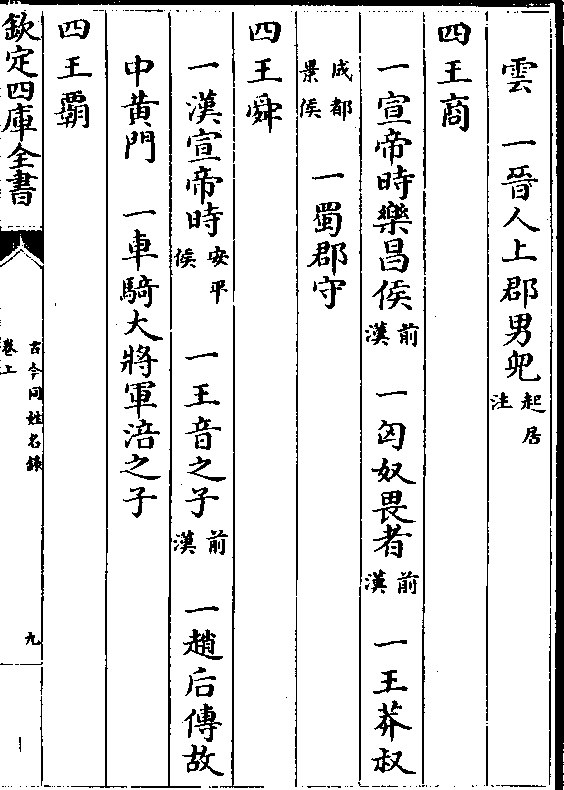 雲　一晉人上郡男兜起居注
四王商
一宣帝時樂昌侯前漢　一匈奴畏者前漢　一王莽叔
成都景侯　一蜀郡守
四王舜
一漢宣帝時安平侯　一王音之子前漢　一趙后傳故
中黃門　一車騎大將軍涪之子
四王霸
欽定四庫全書
古今同姓名錄
卷上
九